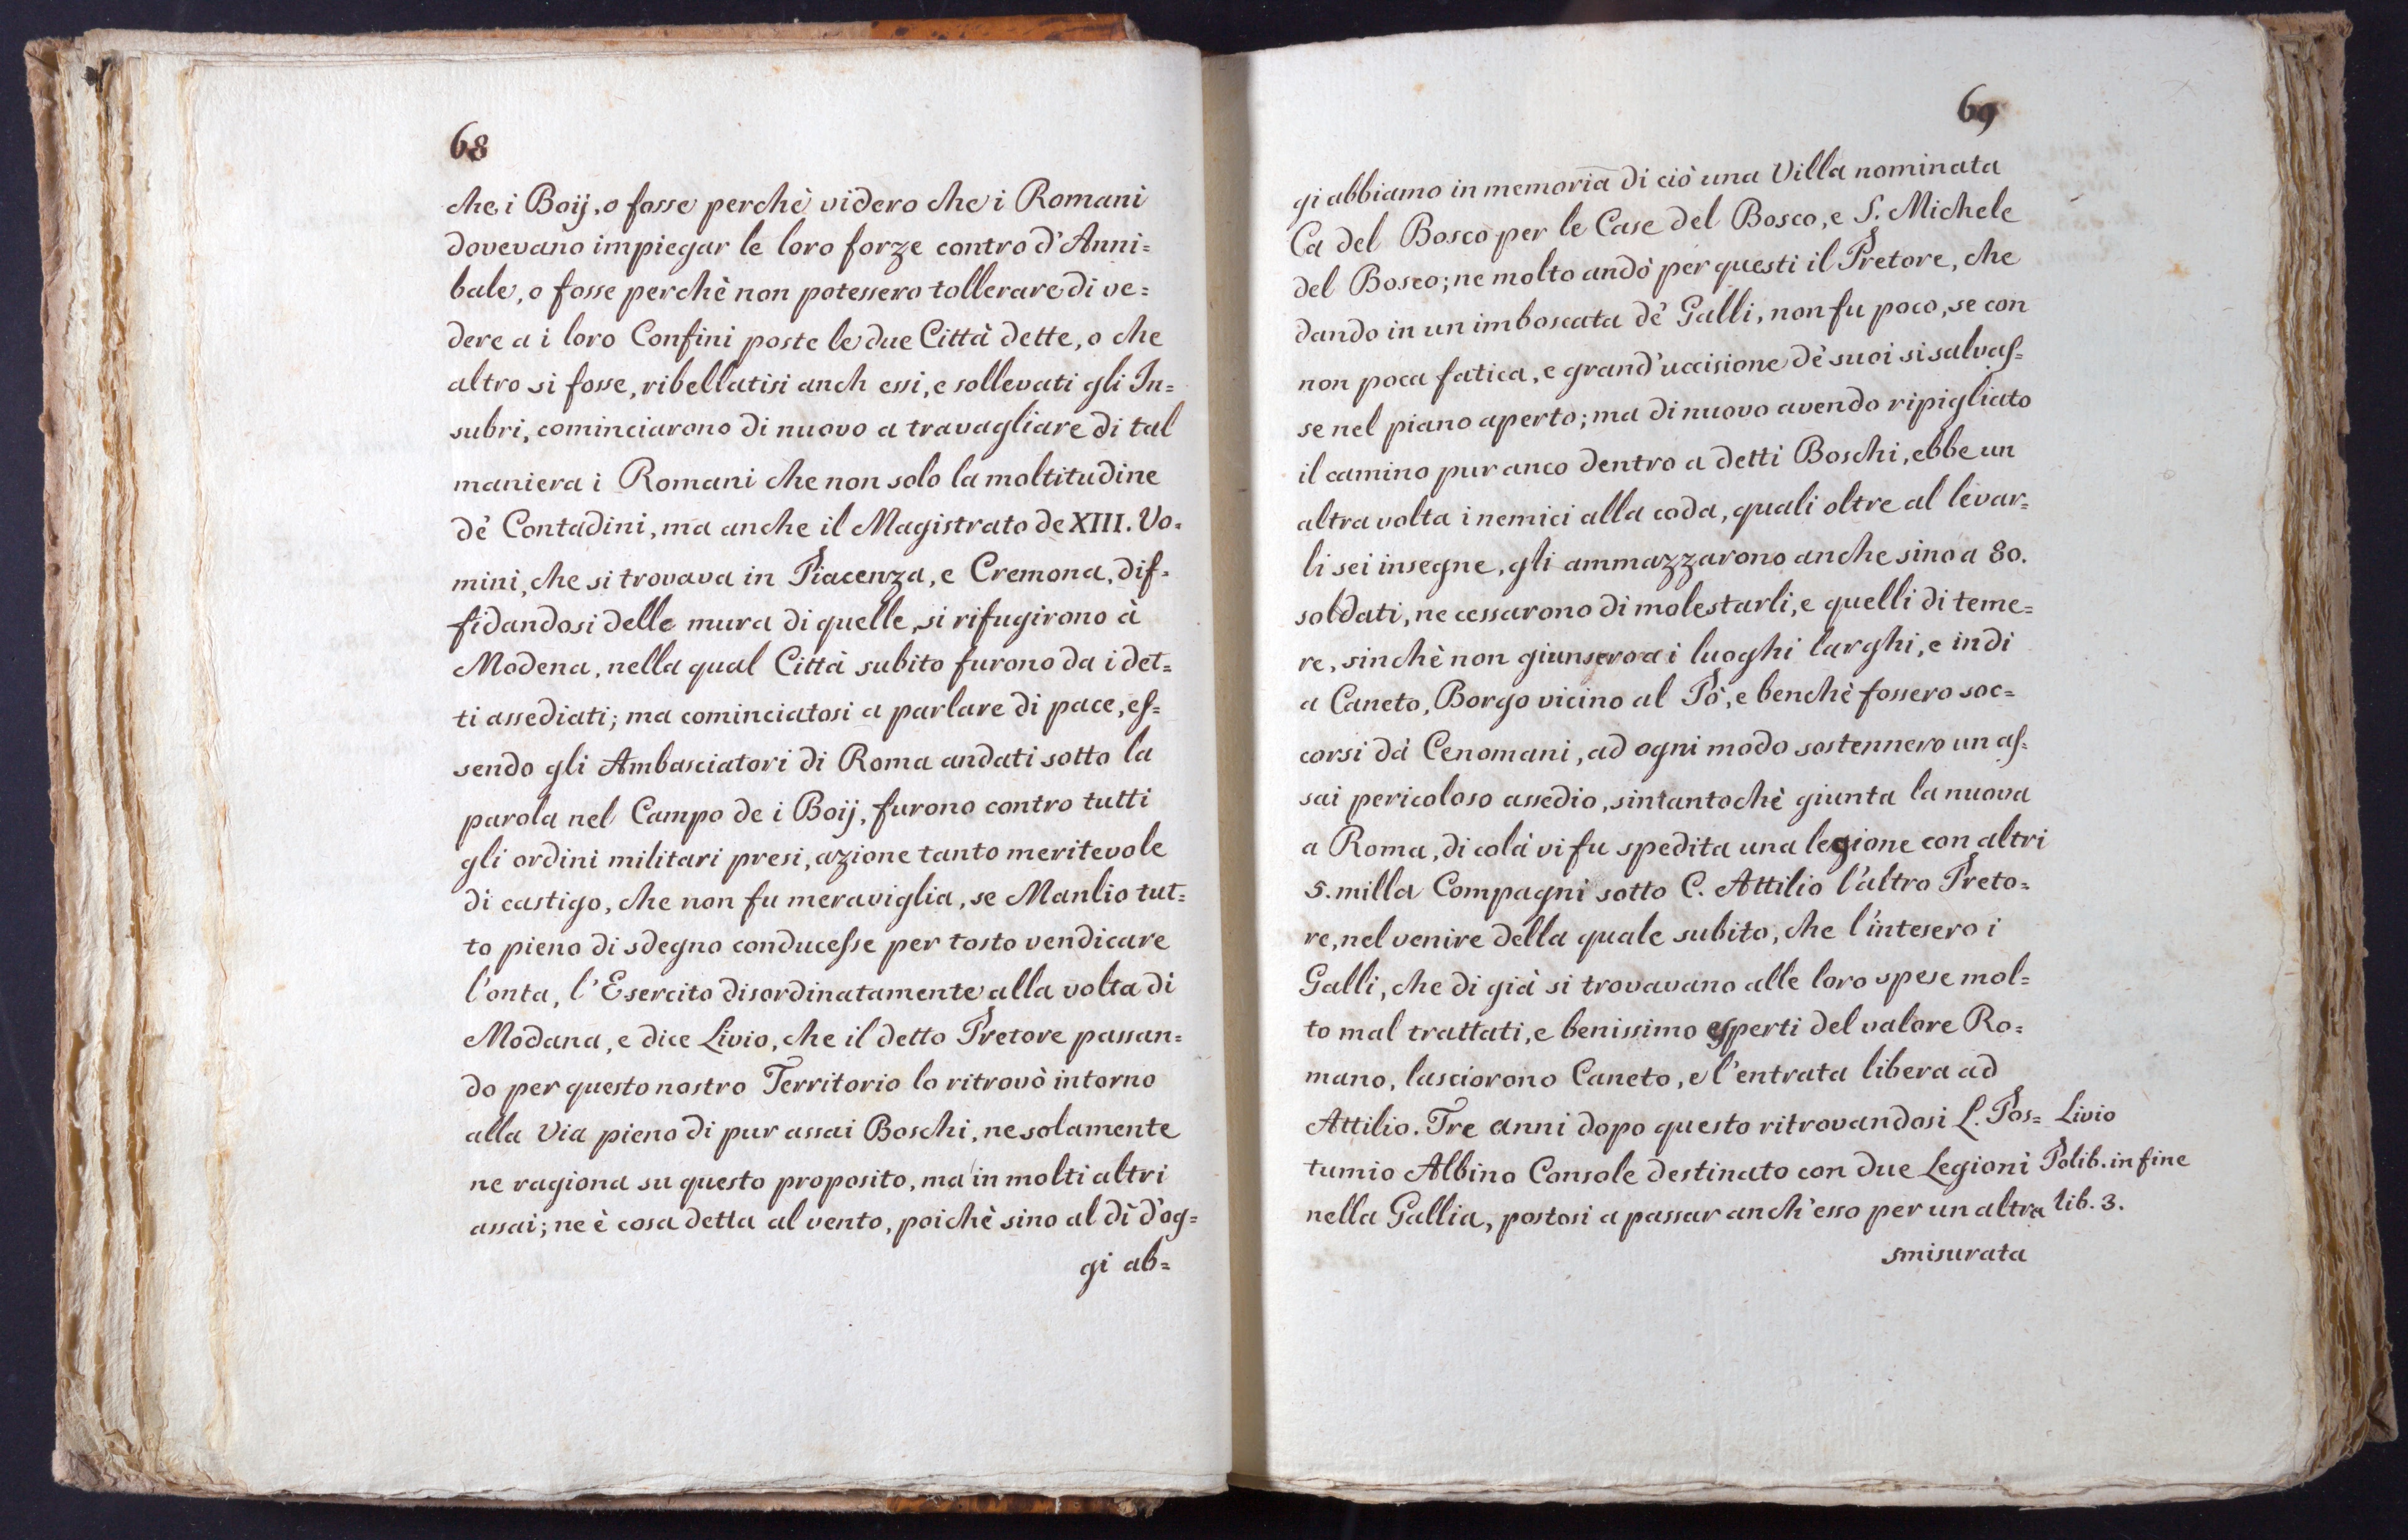 68
che i Boij, o fosse perchè videro che i Romani
dovevano impiegar le loro forze contro d'Anni=
bale, o fosse perchè non potessero tollerare di ve=
dere a i loro Confini poste le due Città dette, o che
altro si fosse, ribellatisi anch essi, e sollevati gli In=
subri, cominciarono di nuovo a travagliare di tal
maniera i Romani che non solo la moltitudine
dè Contadini, ma anche il Magistrato de XIII. Uo=
mini, che si trovava in Piacenza, e Cremona, dif=
fidandosi delle mura di quelle, si rifugirono à
Modena, nella qual Città subito furono da i det=
ti assediati; ma cominciatosi a parlare di pace, es=
sendo gli Ambasciatori di Roma andati sotto la
parola nel Campo de i Boij, furono contro tutti
gli ordini militari presi, azione tanto meritevole
di castigo, che non fu meraviglia, se Manlio tut=
to pieno di sdegno conducesse per tosto vendicare
l'onta, l'Esercito disordinatamente alla volta di
Modana, e dice Livio, che il detto Pretore passan=
do per questo nostro Territorio lo ritrovò intorno
alla Via pieno di pur assai Boschi, ne solamente
ne ragiona su questo proposito, ma in molti altri
assai; ne è cosa detta al vento, poichè sino al dì d'og=
gi ab=
69
gi abbiamo in memoria di ciò una Villa nominata
Ca del Bosco per le Case del Bosco, e S. Michele
del Bosco; ne molto andò per questi il Pretore, che
dando in un imboscata dè Galli, non fu poco, se con
non poca fatica, e grand'uccisione dè suoi si salvas=
se nel piano aperto; ma di nuovo avendo ripigliato
il camino pur anco dentro a detti Boschi, ebbe un
altra volta i nemici alla coda, quali oltre al levar=
li sei insegne, gli ammazzarono anche sino a 80.
soldati, ne cessarono di molestarli, e quelli di teme=
re, sinchè non giunsero a i luoghi larghi, e indi
a Caneto, Borgo vicino al Pò, e benchè fossero soc=
corsi dà Cenomani, ad ogni modo sostennero un as=
sai pericoloso assedio, sintantochè giunta la nuova
a Roma, di colà vi fu spedita una legione con altri
5. milla Compagni sotto C. Attilio l'altro Preto=
re, nel venire della quale subito, che l'intesero i
Galli, che di già si trovavano alle loro spese mol=
to mal trattati, e benissimo esperti del valore Ro=
mano, lasciorono Caneto, e l'entrata libera ad
Attilio. Tre anni dopo questo ritrovandosi L. Pos=
tumio Albino Console destinato con due Legioni
nella Gallia, postosi a passar anch'esso per un altra
smisurata
Livio
Polib. in fine
lib. 3.